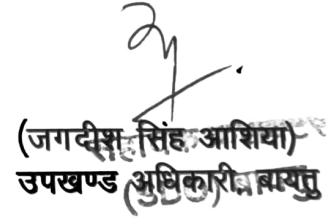 (जगदीश सिंह आशिया)
उपखण्ड अधिकारी, बायतु